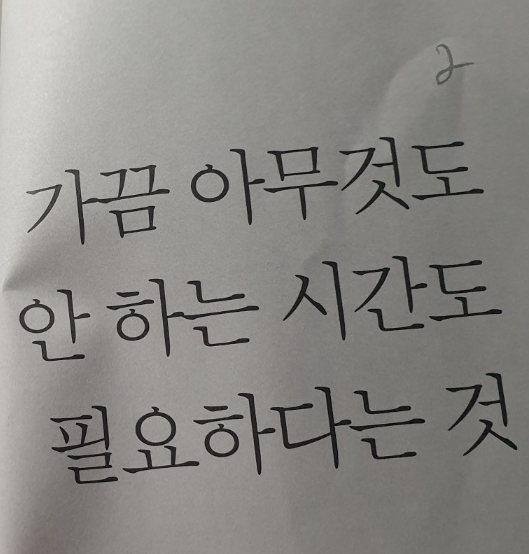 2
가끔 아무것도
안 하는 시간도
필요하다는 것